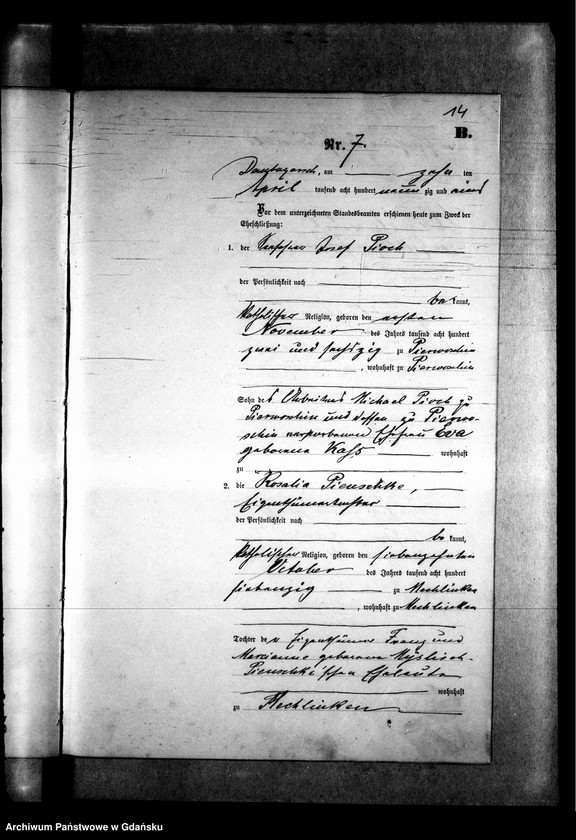 14
B.
Nr. 7.
am zehn ten
April tausend acht hundert neun zig und eins
Vor dem unterzeichneten Standesbeamten erschienen heute zum Zweck der
Eheschließung:
1. der Josef Pioch
der Persönlichkeit nach
be kannt,
katholischer Religion, geboren den ersten
November des Jahres tausend acht hundert
zwei und sechszig zu Pierwoschin
, wohnhaft zu Pierwoschin
Sohn des Arbeiters Michael Pioch zu
Pierwoschin und dessen zu Pierwo-
schin verstorbenen Ehefrau Eva
geborene Kass wohnhaft
zu
2. die Rosalia Pienschke,
Eigenthümertochter
der Persönlichkeit nach
be kannt,
katholischer Religion, geboren den siebenzehnten
October des Jahres tausend acht hundert
siebenzig zu Mechlinken
, wohnhaft zu Mechlinken
Tochter der Eigenthümer Franz und
Marianne geborene
Pienschke'schen Eheleute
wohnhaft
zu Mechlinken
Archiwum Państwowe w Gdańsku